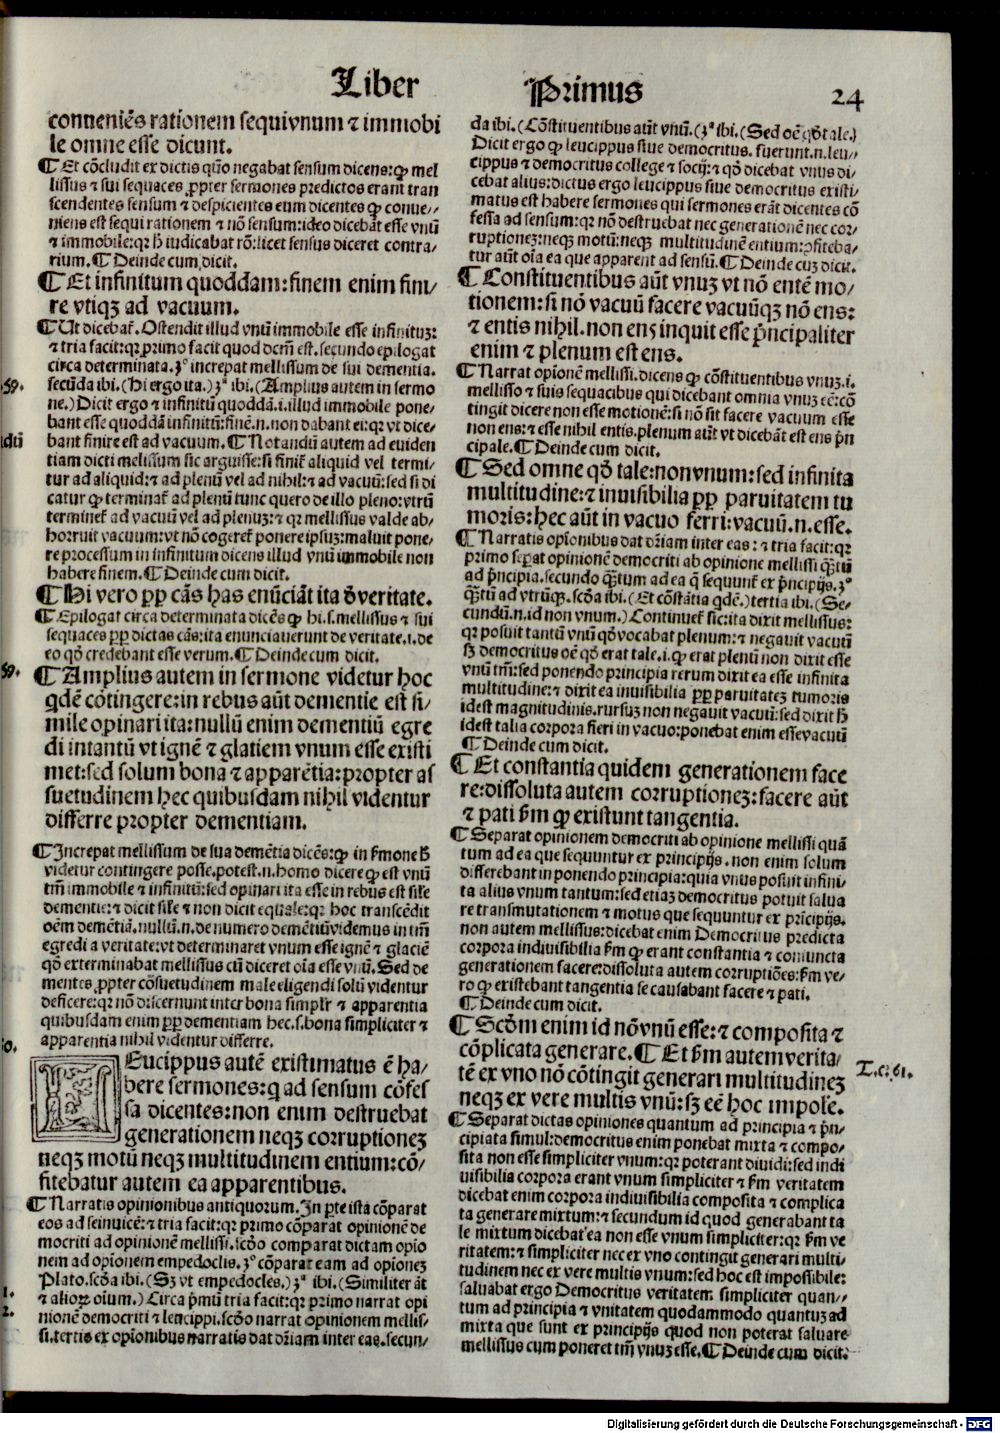 Liber Primus 24
conueniẽs rationem sequivnum ⁊ immobi
le omne esse dicunt.
¶ Et cõcludit ex dictis quõ negabat sensum dicens:ꝙ mel
lissus ⁊ sui sequaces ꝓpter sermones predictos erant tran
scendentes sensum ⁊ despicientes eum dicentes ꝙ conue-
niens est sequi rationem ⁊ nõ sensum:ideo dicebãt esse vnũ
⁊ immobile:qꝛ ħ iudicabat rõ:licet sensus diceret contra/
rium.¶ Deinde cum dicit.
¶ Et infinitum quoddam:finem enim fini/
re vtiqꝫ ad vacuum.
¶ Ut dicebat̃. Ostendit illud vnũ immobile esse infinituꝫ:
⁊ tria facit:qꝛ primo facit quod dcm̃ est.secundo epilogat
circa determinata.ꝫº increpat mellissum de sui dementia.
secũda ibi.(Hi ergo ita.)ꝫª ibi.(Amplius autem in sermo
ne.)Dicit ergo ⁊ infinitũ quoddã.i.illud immobile pone/
bant esse quoddã infinitũ:finẽ.n.non dabant ei:qꝛ vt dice/
bant finire est ad vacuum.¶ Notandũ autem ad euiden
tiam dicti mellissum sic arguisse:si finit̃ aliquid vel termi/
tur ad aliquid:⁊ ad plenũ vel ad nihil:⁊ ad vacuũ:sed si di
catur ꝙ terminat̃ ad plenũ tunc quero de illo pleno:vtrũ
terminet̃ ad vacuũ vel ad plenuꝫ:⁊ qꝛ mellissus valde ab/
horruit vacuum:vt nõ cogeret̃ ponere ipsuꝫ:maluit pone/
re processum in infinitum dicens illud vnũ immobile non
habere finem.¶ Deinde cum dicit.
¶ Hi vero ꝓp cãs has enũciãt ita ð veritate.
¶ Epilogat circa determinata dicẽs ꝙ hi.s.mellissus ⁊ sui
sequaces ꝓp dictas cãs:ita enunciauerunt de veritate.i.de
eo qõ credebant esse verum.¶ Deinde cum dicit.
¶ Amplius autem in sermone videtur hoc
qdẽ cõtingere:in rebus aũt dementie est si/
mile opinari ita:nullũ enim dementiũ egre
di intantũ vt ignẽ ⁊ glatiem vnum esse existi
met:sed solum bona ⁊ apparẽtia:propter as
suetudinem hec quibusdam nihil videntur
differre propter dementiam.
¶ Increpat mellissum de sua demẽtia dicẽs:ꝙ in ẜmone ħ
videtur contingere posse.potest.n.homo dicere ꝙ est vnũ
tm̃ immobile ⁊ infinitũ:sed opinari ita esse in rebus est sile
dementie:⁊ dicit sile ⁊ non dicit equale:qꝛ hoc transcẽdit
oẽm demẽtiã.nullũ.n.de numero dementiũ videmus in tm̃
egredi a veritate:vt determinaret vnum esse ignẽ ⁊ glaciẽ
qõ exterminabat mellissus cũ diceret oĩa esse vnũ.Sed de
mentes ꝓpter cõsuetudinem male eligendi solũ videntur
deficere:qꝛ nõ discernunt inter bona simplr̃ ⁊ apparentia
quibusdam enim ꝓp dementiam hec.s.bona simpliciter ⁊
apparentia nihil videntur differre.
LEucippus autẽ existimatus ẽ ha/
bere sermones:q ad sensum cõfes
sa dicentes:non enim destruebat
generationem neqꝫ corruptioneꝫ
neqꝫ motũ neqꝫ multitudinem entium:cõ/
fitebatur autem ea apparentibus.
¶ Narratis opinionibus antiquorum.In ꝑte ista cõparat
eos ad seinuicẽ:⁊ tria facit:qꝛ primo cõparat opinionẽ de
mocriti ad opinionẽ mellissi.scðo comparat dictam opio
nem ad opionem empedoclis.ꝫº cõparat eam ad opioneꝫ
Plato.scða ibi.(Sꝫ vt empedocles.)ꝫª ibi.(Similiter ãt
⁊ alioꝝ oium.)Circa p̃mũ tria facit:qꝛ primo narrat opi
nionẽ democriti ⁊ leucippi.scðo narrat opinionem mellis/
si.tertio ex opionibus narratis dat drĩam inter eas.secun/
da ibi.(Cõstituentibus aũt vnũ.)ꝫª ibi.(Sed oẽ qð tale.)
Dicit ergo ꝙ leucippus siue democritus. fuerunt.n.leu/
cippus ⁊ democritus college ⁊ socij:⁊ qð dicebat vnus di/
cebat alius:dictus ergo leucippus siue democritus existi/
matus est habere sermones qui sermones erãt dicentes cõ
fessa ad sensum:qꝛ nõ destruebat nec generationẽ nec cor/
ruptioneꝫ:neqꝫ motũ:neqꝫ multitudinẽ entium:ꝯfiteba/
tur aũt oĩa ea que apparent ad sensũ.¶ Deinde cuꝫ dicit.
¶ Constituentibus aũt vnuꝫ vt nõ entẽ mo/
tionem:si nõ vacuũ facere vacuũqꝫ nõ ens:
⁊ entis nihil.non ens inquit esse p̃ncipaliter
enim ⁊ plenum est ens.
¶ Narrat opionẽ mellissi.dicens ꝙ cõstituentibus vnuꝫ.i.
mellisso ⁊ suis sequacibus qui dicebant omnia vnuꝫ eẽ:cõ
tingit dicere non esse motionẽ:si nõ sit facere vacuum esse
non ens:⁊ esse nihil entis.plenum aũt vt dicebãt est ens p̃n
cipale.¶ Deinde cum dicit.
¶ Sed omne qð tale:non vnum:sed infinita
multitudine:⁊ inuisibilia ꝓp paruitatem tu
moris:hec aũt in vacuo ferri:vacuũ.n.esse.
¶ Narratis opionibus dat dr̃iam inter eas:⁊ tria facit:qꝛ
primo sepat opinionẽ democriti ab opinione mellissi q̃tũ
ad p̃ncipia.secundo q̃tum ad ea q̃ sequunt̃ ex p̃ncipijs.ꝫº
q̃tũ ad vtrũqꝫ.scða ibi.(Et cõstãtia qdẽ.)tertia ibi.(Se/
cundũ.n.id non vnum.)Continuet̃ sic:ita dixit mellissus:
qꝛ posuit tantũ vnũ qð vocabat plenum:⁊ negauit vacuũ
sꝫ democritus oẽ qð erat tale.i.ꝙ erat plenũ non dixit esse
vnũ tm̃:sed ponendo principia rerum dixit ea esse infinita
multitudine:⁊ dixit ea inuisibilia ꝓp paruitateꝫ tumoris
idest magnitudinis.rursuꝫ non negauit vacuũ:sed dixit ħ
idest talia corpora fieri in vacuo:ponebat enim esse vacuũ
¶ Deinde cum dicit.
¶ Et constantia quidem generationem face
re:dissoluta autem corruptioneꝫ:facere aũt
⁊ pati ẜm ꝙ existunt tangentia.
¶ Separat opinionem democriti ab opinione mellissi quã
tum ad ea que sequuntur ex principijs. non enim solum
differebant in ponendo principia:quia vnus posuit infini/
ta alius vnum tantum:sed etiaꝫ democritus potuit salua
re transmutationem ⁊ motus que sequuntur ex pricipijs.
non autem mellissus:dicebat enim Democritus predicta
corpora indiuisibilia ẜm ꝙ erant constantia ⁊ coniuncta
generationem facere:dissoluta autem corruptiões:ẜm ve/
ro ꝙ existebant tangentia se causabant facere ⁊ pati.
¶ Deinde cum dicit.
¶ Scðm enim id nõ vnũ esse:⁊ composita ⁊
cõplicata generare.¶ Et ẜm autem verita/
tẽ ex vno nõ cõtingit generari multitudineꝫ
neqꝫ ex vere multis vnũ:sꝫ eẽ hoc impole.
T.c.61.
¶ Separat dictas opiniones quantum ad principia ⁊ p̃n/
cipiata simul:democritus enim ponebat mixta ⁊ compo/
sita non esse simpliciter vnum:qꝛ poterant diuidi:sed indi
uisibilia corpora erant vnum simpliciter ⁊ ẜm veritatem
dicebat enim corpora indiuisibilia composita ⁊ complica
ta generare mixtum:⁊ secundum id quod generabant ta
le mixtum dicebat ea non esse vnum simpliciter:qꝛ ẜm ve
ritatem:⁊ simpliciter nec ex vno contingit generari multi/
tudinem nec ex vere multis vnum:sed hoc est impossibile:
saluabat ergo Democritus veritatem simpliciter quan/
tum ad principia ⁊ vnitatem quodammodo quantuꝫ ad
mixta que sunt ex principijs quod non poterat saluare
mellissus cum poneret tm̃ vnuꝫ esse.¶ Deinde cum dicit.
Digitalisierung gefördert durch die Deutsche Forschungsgemeinschaft - DFG